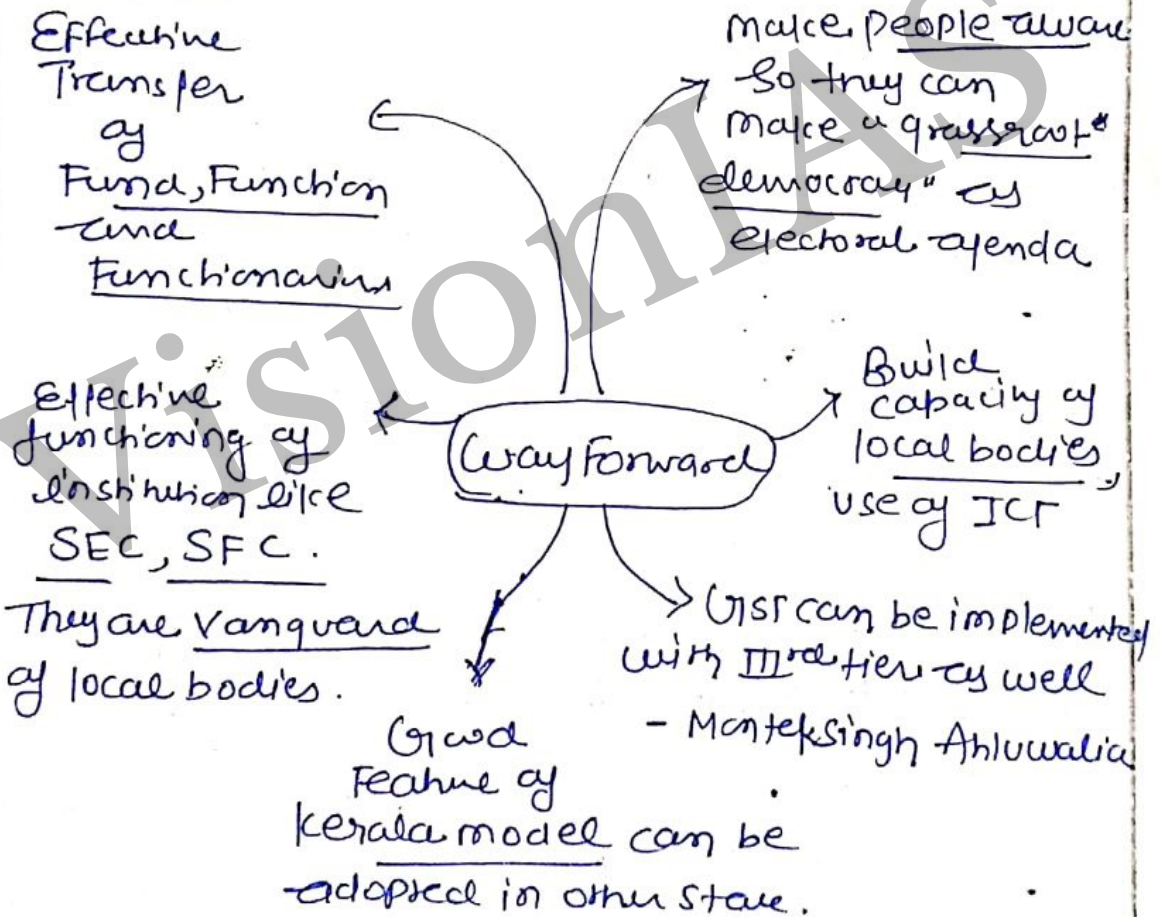 Effective
Transfer
of
Fund, Function
and
Functionaries
make people aware
so they can
make "grassroot"
democracy" as
electoral agenda
Effective
functioning of
institution like
SEC, SFC.
They are vanguard
of local bodies.
Way Forward
Build
capacity of
local bodies,
use of ICT
GST can be implemented
with IIIrd tier as well
- Montek Singh Ahluwalia
Good
Feature of
Kerala model can be
adopted in other state.
VisionIAS